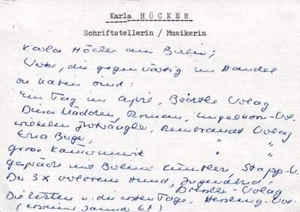 Karla HÖCKER
Schriftstellerin / Musikerin
Karla Höcker aus Berlin;
Werke, die gegenwärtig im Handel
zu haben sind:
Ein Tag im April, Verlag
Dieses Mädchen, Roman,
Wilhelm Furtwängler, Rembrandt Verlag
Erna Berger, " "
Große Kammermusik " "
Gespräche mit Berliner Künstlern, Stapp-V.
Der 3x verlorene Hund, Jugendbuch,
Verlag
Die letzten u. die ersten Tage, Verlag